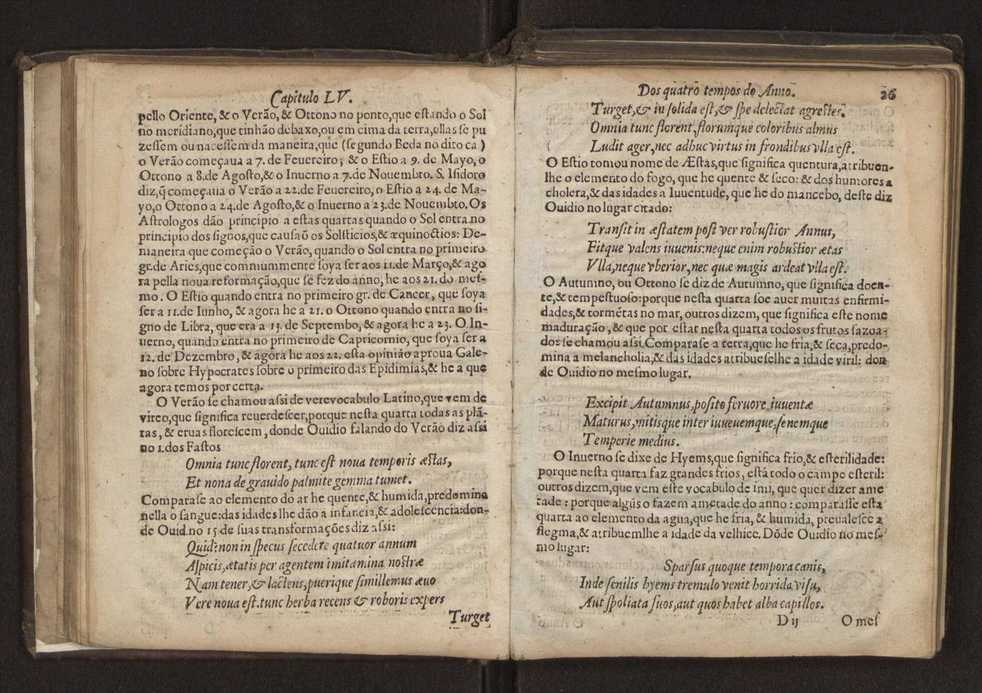 Capitulo LV.
pello Oriente, & o Verão, & Ottono no ponto, que estando o Sol
no meridiano, que tinhão debaxo, ou em cima da terra, ellas se pu
zessem ou nacessem da maneira, que (segundo Beda no dito ca)
o Verão começaua a 7. de Feuereiro; & o Estio a 9. de Mayo, o
Ottono a 8. de Agosto, & o Inuerno a 7. de Nouembro. S. Isidoro
diz, q̃ começaua o Verão a 22. de Feuereiro, o Estio a 24. de Ma-
yo, o Ottono a 24. de Agosto, & o Inuerno a 23. de Nouembro. Os
Astrologos dão principio a estas quartas quando o Sol entra no
principio dos signos, que causaõ os Solsticios, & æquinoctios: De-
maneira que começão o Verão, quando o Sol entra no primeiro
gr. de Aries, que commummente soya ser aos 11. de Março, & ago
ra pella noua reformação, que se fez do anno, he aos 21. do mes-
mo. O Estio quando entra no primeiro gr. de Cancer, que soya
ser a 11. de Iunho, & agora he a 21. o Ottono quando entra no si-
gno de Libra, que era a 13. de Septembo, & agora he a 23. O In-
uerno, quando entra no primeiro de Capricornio, que soya ser a
12. de Dezembro, & agora he aos 22. esta opinião aproua Gale-
no sobre Hypocrates sobre o primeiro das Epidimias, & he a que
agora temos por certa.
O Verão se chamou assi de verevocabulo Latino, que vem de
vireo, que significa reuerdescer, porque nesta quarta todas as plã-
tas, & eruas florescem, donde Ouidio falando do Verão diz assi
no 1. dos Fastos
Omnia tunc florent, tunc est noua temporis æstas,
Et nona de grauido palmite gemma tumet.
Comparase ao elemento do ar he quente, & humida, predomina
nella o sangue: das idades lhe dão a infancia, & adolescencia: don-
de Ouid. no 15 de suas transformações diz assi:
Quid? non in specus secedere quatuor annum
Aspicis, ætatis per agentem imitamina nostræ
Nam tener, & lactens, puerique simillemus æuo
Vere noua est. tunc herba recens & roboris expers
Turget
Dos quatro tempos do Anno. 26
Turget, & in solida est, & spe delectat agrestes.
Omnia tunc florent, florumque coloribus almus
Ludit ager, nec adhuc virtus in frondibus vlla est.
O Estio tomou nome de Æstas, que significa quentura, atribuen-
lhe o elemento do fogo, que he quente & seco: & dos humores a
cholera, & das idades a Iuuentude, que he do mancebo, deste diz
Ouidio no lugar citado:
Transit in æstatem post ver robustior Annus,
Fitque valens iuuenis: neque enim robustior ætas
Vlla, neque vberior, nec quæ magis ardeat vlla est.
O Autumno, ou Ottono se diz de Autumno, que significa doen-
te, & tempestuoso: porque nesta quarta soe auer muitas enfirmi-
dades, & tormẽtas no mar, outros dizem, que significa este nome
maduração, & que por estar nesta quarta todos os frutos sazoa-
dos se chamou assi. Comparase a terra, que he fria, & seca, predo-
mina a melancholia, & das idades atribueselhe a idade viril: don-
de Ouidio no mesmo lugar.
Excipit Autumnus, posito feruore iuuentæ
Maturus, mitisque inter iuueuemque, senemque
Temperie medius.
O Inuerno se dixe de Hyems, que significa frio, & esterilidade:
porque nesta quarta faz grandes frios, está todo o campo esteril:
outros dizem, que vem este vocabulo de Imi, que quer dizer ame
tade: porque algũs o fazem ametade do anno: comparasse esta
quarta ao elemento da agua, que he fria, & humida, preualesce a
flegma, & atribuemlhe a idade da velhice. Dõde Ouidio no mes-
mo lugar:
Sparsus quoque tempora canis,
Inde senilis hyems tremulo venit horrida visu,
Aut spoliata suos, aut quos habet alba capillos.
D ij O mes